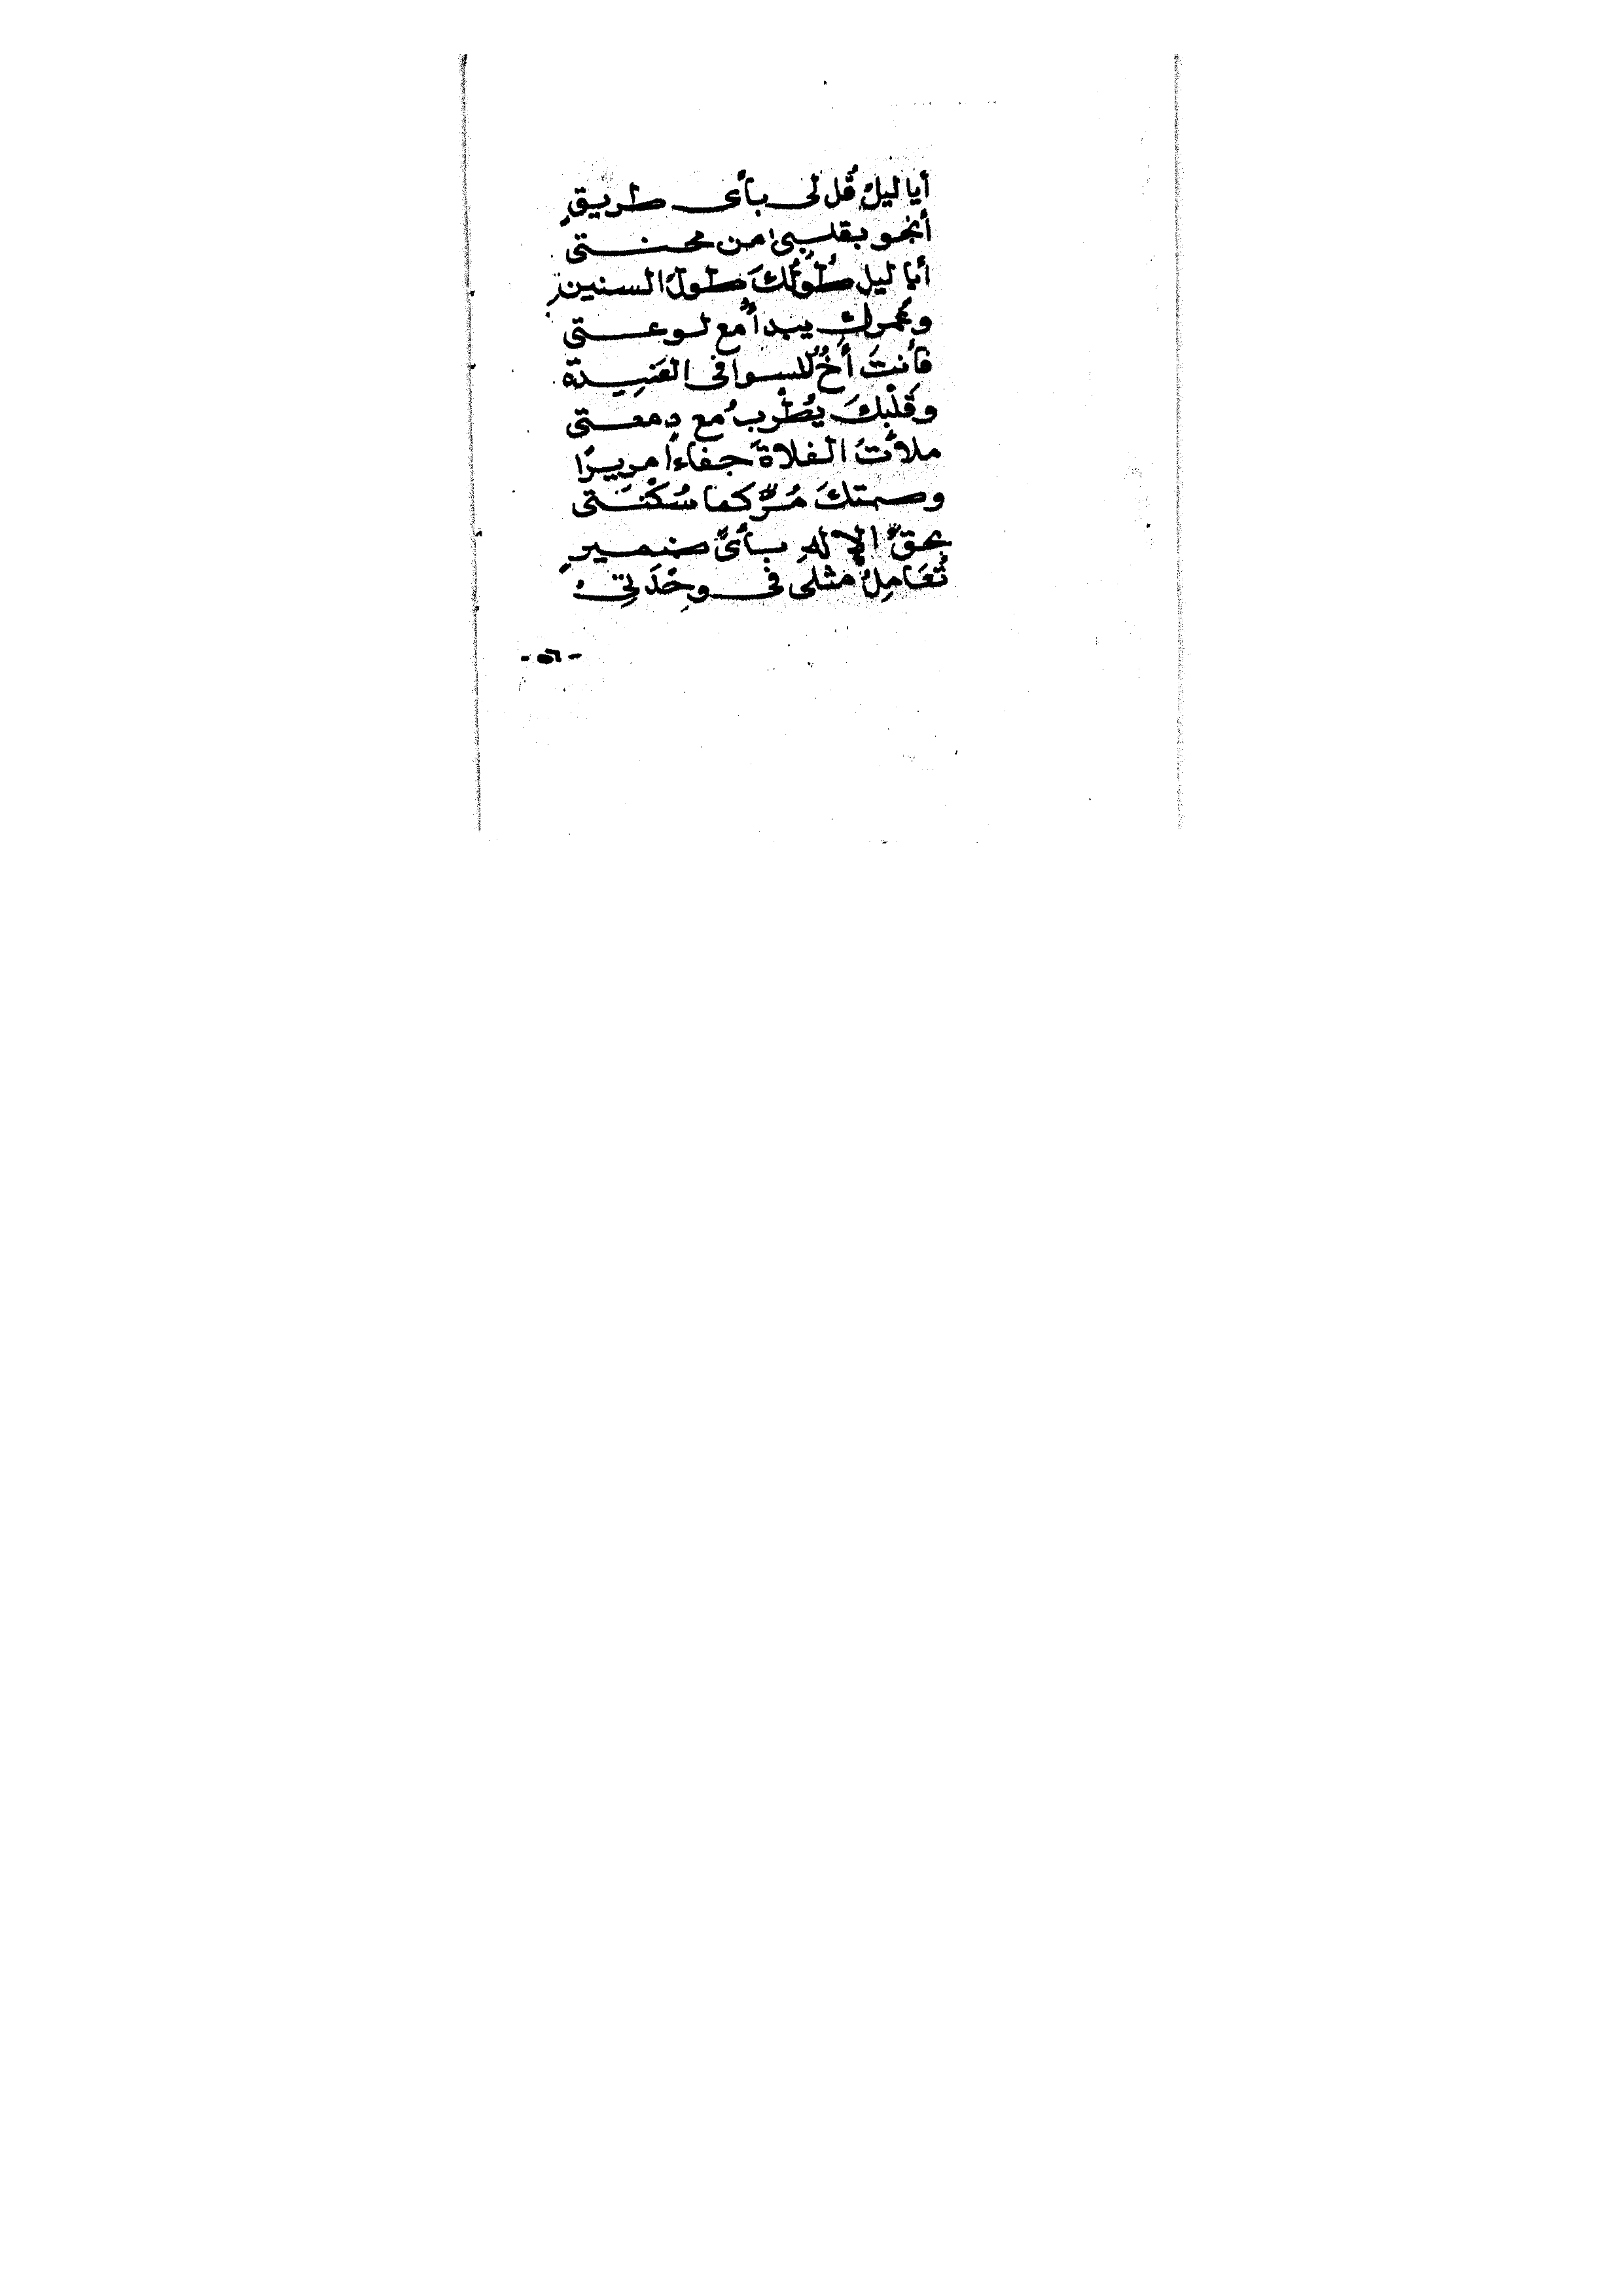 أيا ليلُ قُل لى بأى طريقٍ
أنجو بقلبى من محنتى
أيا ليل طُولُكَ طولُ السنينِ
وعُمرك يبدأُ مع لوعتى
فأنتَ أخُ للسوافى العَنِيدَة
وقَلْبكَ يُطْربُ مع دمعتى
ملأتَ الفلاةَ جفاءاً مريرًا
وصمتكَ مُرٌّ كما سُكْنَتى
بحقِّ الإلهِ بأىِّ ضميرٍ
تُعَامِلُ مثلى فى وِحْدَتِى
- ٥٦ -